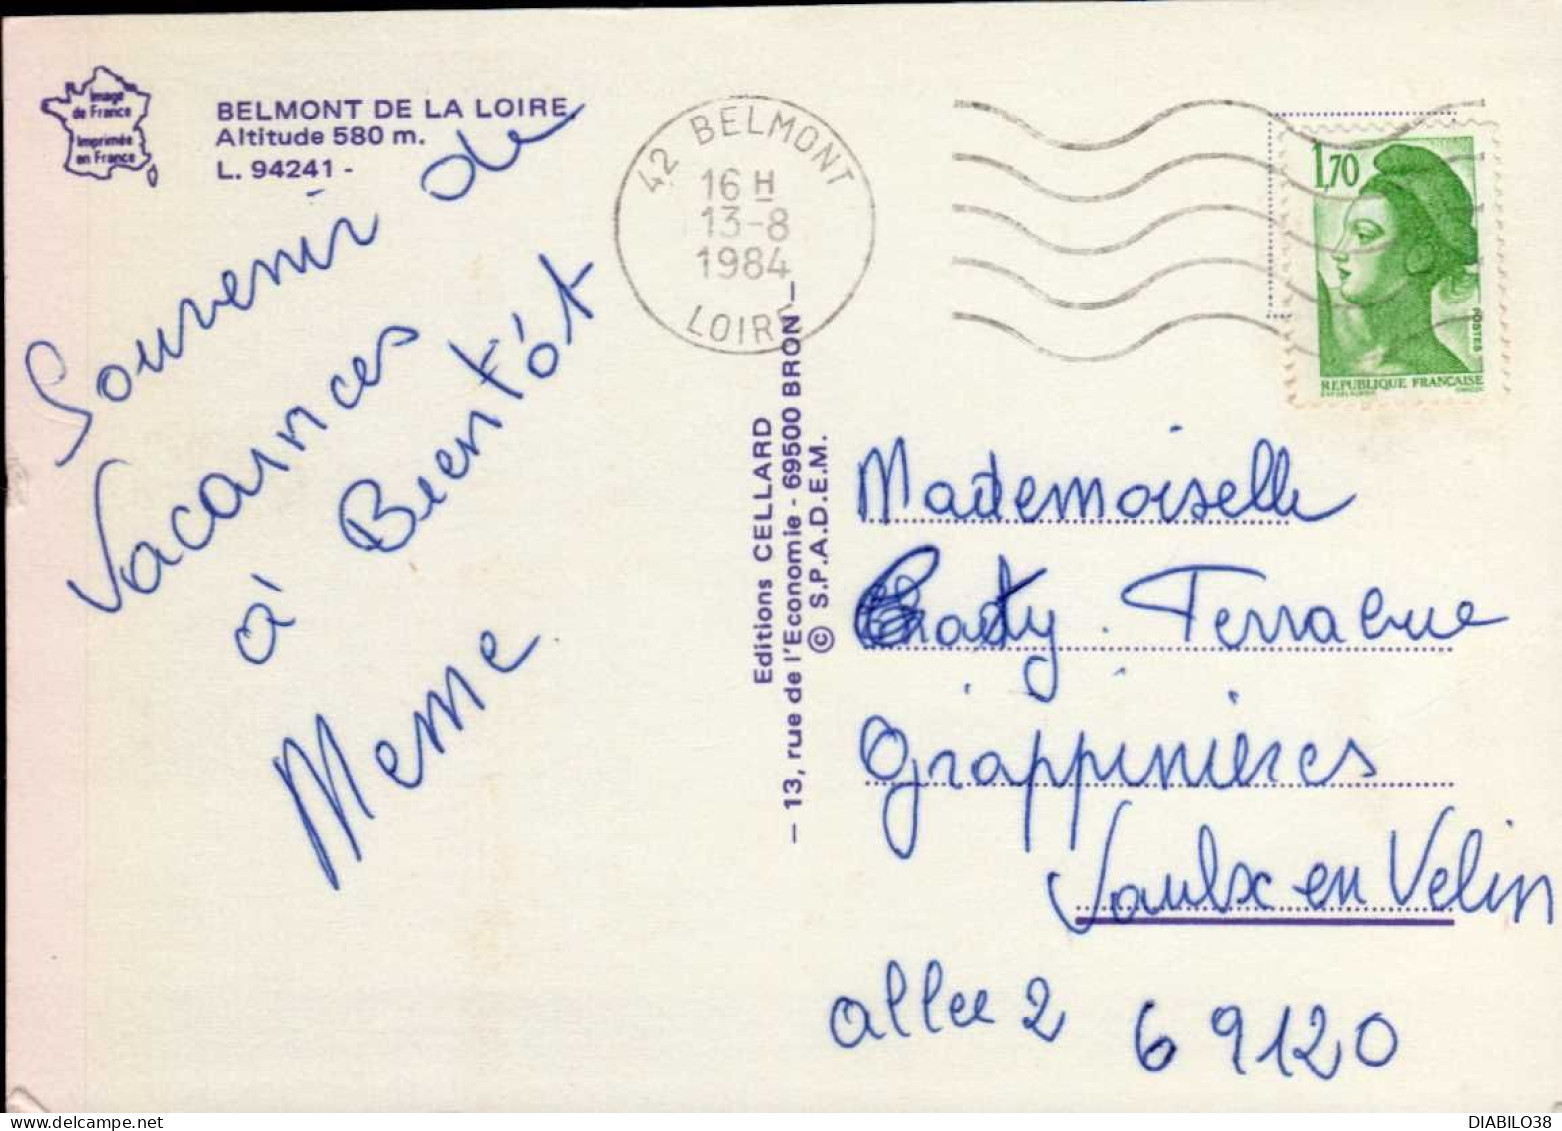 Image
de France
Imprimée
en France
BELMONT DE LA LOIRE
Altitude 580 m.
L. 94241 -
Souvenir de
Vacances
à Bientôt
Meme
42 BELMONT
16 H
13-8
1984
LOIRE
Editions CELLARD
— 13, rue de l'Economie - 69500 BRON —
© S.P.A.D.E.M.
1,70
POSTES
REPUBLIQUE FRANÇAISE
Mademoiselle
grappinières
Vaulx en Velin
allee 2 69120
DIABILO38